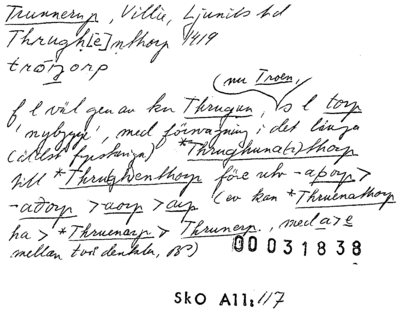 Trunnerup, Villie, Ljunits hd
Thrugh[e]nthorp 1419
trónorp
(nu Troen,
f l väl gen av kn Thrugun, s l torp
'nybygge', med försvagning i det långa
(äldst fyrstaviga) *Thrughuna(r)thorp
till *Thrughenthorp före utv -aþorp >
-aðorp > -aorp > -arp (ev kan *Thruenathorp
ha > *Thruenarp > Thrunerp, med a > e
mellan två dentaler,
00031838
SkO All: 117